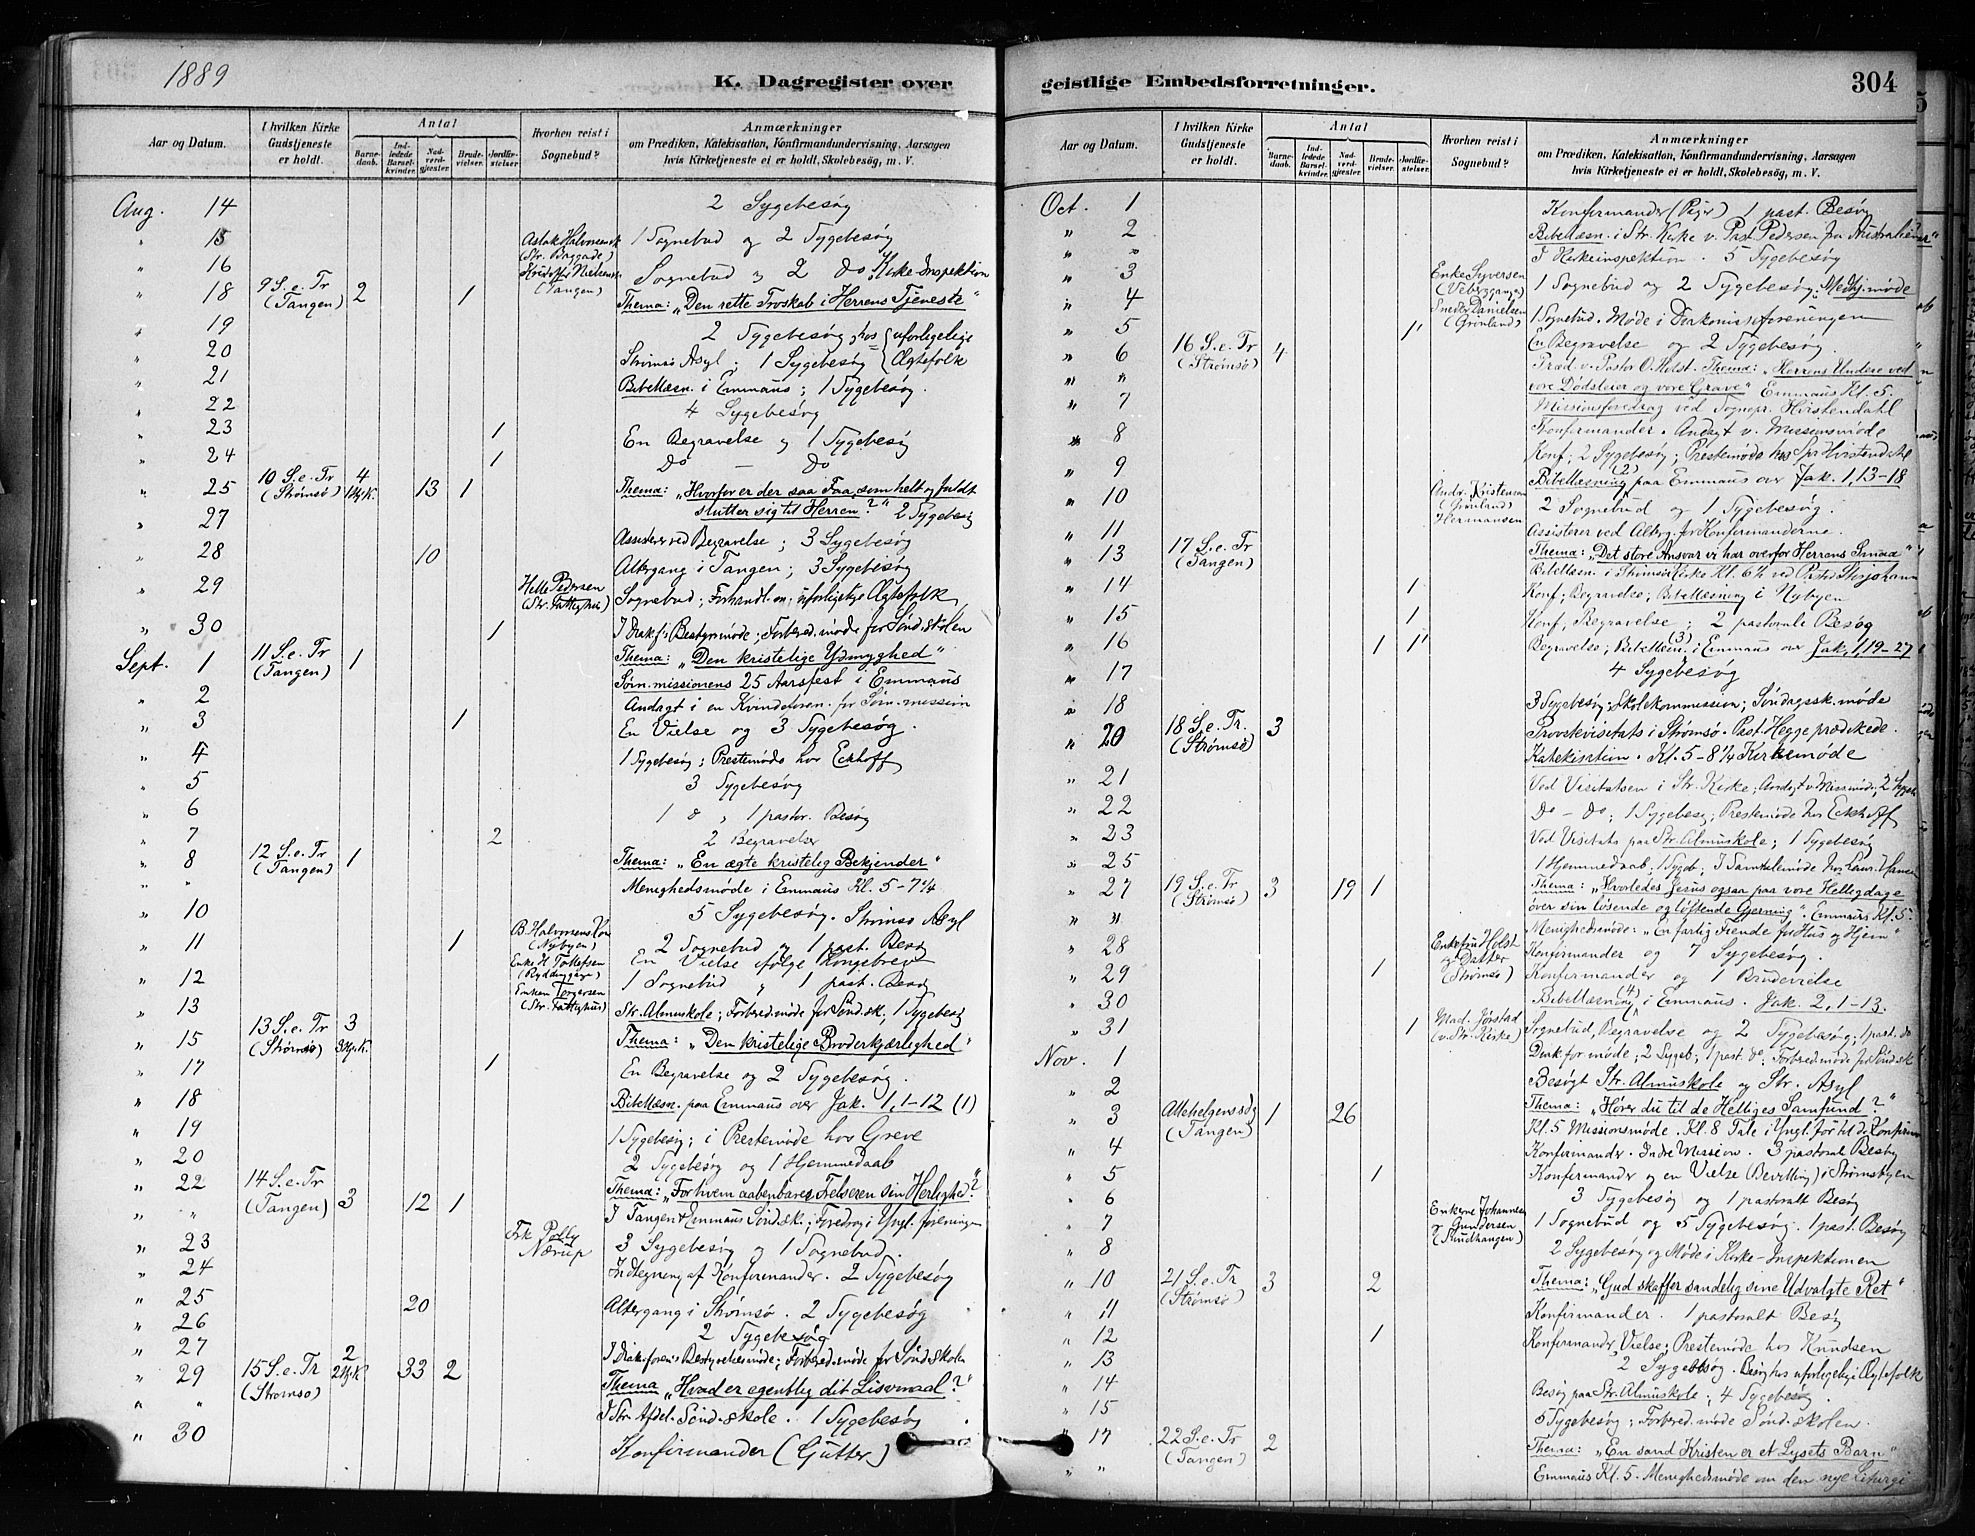 1889
K. Dagregister over
Aar og Datum.
I hvilken Kirke Gudstjeneste er holdt.
Antal
Barnedaab.
Indledede Barselkvinder.
Nadverdgjester.
Brudevielser.
Jordfæstelser.
Hvorhen reist i Sognebud?
Anmærkninger
om Prædiken, Katekisation, Konfirmandundervisning, Aarsagen
hvis Kirketjeneste ei er holdt, Skolebesøg, m. V.
Aug. 14 2 Sygebesøg
" 15 1 Sognebud og 2 Sygebesøg
(Str. Baggade)
" 16 Sognebud og 2 do, Kirke-Inspektion
(Tangen)
" 18 9 S. e. Tr (Tangen) 2 1 Thema: "Den rette Troskab i Herrens Tjeneste"
" 19 2 Sygebesøg, hos uforligelige
" 20 Strømsø Asyl; 1 Sygebesøg Ægtefolk
" 21 Bibellæsn. i Emmaus; 1 Sygebesøg.
" 22 4 Sygebesøg
" 23 1 En Begravelse og 1 Sygebesøg
" 24 1 Do — Do
" 25 10 S. e. Tr (Strømsø) 4 13 1 Thema: "Hvorfor er der saa Faa, som helt og fuldt
slutter sig til Herren?" 2 Sygebesøg
" 27 Assisterer ved Begravelse; 3 Sygebesøg
" 28 10 Altergang i Tangen; 3 Sygebesøg
" 29 Helle Pedersen (Str. Fattighus) Sognebud; Forhandl. m. uforligelige Ægtefolk
" 30 1 I Diak.f. Bestyr.møde; Forbered.møde for Sønd.skolen
Sept. 1 11 S. e. Tr (Tangen) 1 Thema: "Den kristelige Ydmyghed"
Søm.missionens 25 Aarsfest i Emmaus
" 2 Andagt i en Kvindeforen. for Søm.mission
" 3 1 En Vielse og 3 Sygebesøg.
" 4 1 Sygebesøg; Prestemøde hos Eckhoff
" 5 3 Sygebesøg
" 6 1 d " 1 pastor. Besøg
" 7 2 2 Begravelser
" 8 12 S. e. Tr (Tangen) 1 Thema: "En ægte kristelig Bekjender"
" " Menighedsmøde i Emmaus Kl. 5–7¼
" 10 5 Sygebesøg. Strømsø Asyl
" 11 (Nybyen) 1 2 Sognebud og 1 past. Besøg
En Vielse ifølge Kongebrev
" 12 Enke H Tollefsen 1 Sognebud og 1 past. Besøg
Enken Torgersen (Str. Fattighus)
" 13 Str. Almuskole; Forbered.møde for Sønd.sk; 1 Sygebesøg
" 15 13 S. e. Tr (Strømsø) 3 Thema: "Den kristelige Broderkjærlighed"
" 17 1 En Begravelse og 2 Sygebesøg.
" 18 Bibellæsn. paa Emmaus over Jak. 1,1–12 (1)
" 19 1 Sygebesøg; i Prestemøde hos Greve
" 20 2 Sygebesøg og 1 Hjemmedaab
" 22 14 S. e. Tr (Tangen) 3 12 1 Thema: "For hvem aabenbarer Frelseren sin Herlighed?"
" " I Tangen & Emmaus Sønd.sk.; Foredrog i Yngl. foreningen
" 23 Frk Polly Nærup 3 Sygebesøg og 1 Sognebud.
" 24 Indtegning af Konfirmander. 2 Sygebesøg
" 25 20 Altergang i Strømsø. 2 Sygebesøg
" 26 2 Sygebesøg
" 27 I Diak.forens Bestyrelsesmøde; Forbered.møde for Sønd.skolen
" 29 15 S. e. Tr (Strømsø) 2 33 2 Thema "Hvad er egentlig dit Livsmaal?"
" " I Str. Afdel. Sønd.skole. 1 Sygebesøg
" 30 Konfirmander (Gutter)
geistlige Embedsforretninger.
304
Aar og Datum.
I hvilken Kirke Gudstjeneste er holdt.
Antal
Barnedaab.
Indledede Barselkvinder.
Nadverdgjester.
Brudevielser.
Jordfæstelser.
Hvorhen reist i Sognebud?
Anmærkninger
om Prædiken, Katekisation, Konfirmandundervisning, Aarsagen
hvis Kirketjeneste ei er holdt, Skolebesøg, m. V.
Oct. 1 Konfirmander (Piger) 1 past. Besøg
" 2 Bibellæsn. i Str. Kirke v. Past. Pedersen fra Australien
" " I Kirkeinspektion. 5 Sygebesøg
" 3 Enke Syversen 1 Sognebud og 2 Sygebesøg.
" 4 Danielsen (Grønland) 1 Sognebud. Møde i Diakonisseforeningen
" 5 1 En Begravelse og 2 Sygebesøg.
" 6 16 S. e. Tr (Strømsø) 4 Præd. v. Pastor O. Holst. Thema: "Herrens Undere ved
" " vore Dødsleier og vore Grave" Emmaus Kl. 5.
" 7 Missionsforedrag ved Sognepr. Hvistendahl
" 8 Konfirmander. Andagt v. Missionsmøde
" 9 Konf; 2 Sygebesøg; Prestemøde hos Spr Hvistendahl
Bibellæsning (2) paa Emmaus over Jak. 1, 13–18
" 10 Andr. Kristensen (Grønland) Hermansen 2 Sognebud og 1 Sygebesøg.
" 11 Assisterer ved Alterg. for Konfirmanderne.
" 13 17 S. e. Tr (Tangen) Thema: "Det store Ansvar vi har overfor Herrens Smaa"
Bibellæsn. i Strømsø Kirke Kl. 6½ ved Pastor Storjohann
" 14 1 Konf; Begravelse; Bibellæsning i Nybyen
" 15 1 Konf; Begravelse; 2 pastorale Besøg
" 16 1 1 Begravelse; Bibellæsn. (3) i Emmaus over Jak. 1,19–27
" 17 4 Sygebesøg
" 18 3 Sygebesøg; Skolekommission; Søndagssk.møde
" 20 18 S. e. Tr. (Strømsø) 3 Provstevisitats i Strømsø. Past. Hegge prædikede.
Katekisation. Kl. 5–8¼ Kirkemøde
" 21 Ved Visitatsen i Str. Kirke; Andagt v. Miss.møde;
" 22 Do – do; 1 Sygebesøg; Prestemøde hos Eckhoff
" 23 Ved Visitats paa Str. Almuskole; 1 Sygebesøg
" 25 1 Hjemmedaab, 1 Sygeb.; I Samtalemøde hos
" 27 19 S. e. Tr (Strømsø) 3 19 1 Thema: "Hvorledes Jesus ogsaa paa vore Helligdage
över sin løsende og løftende Gjerning". Emmaus Kl. 5
" " Menighedsmøde: "En farlig Fiende for Hus og Hjem"
" 28 Enkefru Holst og Datter (Strømsø) Konfirmander og 7 Sygebesøg.
" 29 1 Konfirmander og 1 Brudevielse
" 30 Bibellæsning (4) i Emmaus. Jak. 2, 1–13.
" 31 1 Mad. Jørstad (v. Str. Kirke) Sognebud, Begravelse og 2 Sygebesøg; 1 past. do
Nov. 1 Diak.for.møde; 2 Sygeb; 1 past. do; Forbered.møde for Sønd.sk
" 2 Besøgt Str. Almuskole og Str. Asyl
" 3 Allehelgensdg (Tangen) 1 26 Thema: "Hører du til de Helliges Samfund?"
Kl. 5 Missionsmøde. Kl. 8 Tale i Yngl. for. til de
" 4 Konfirmander. Indre Mission. 3 pastoral Besøg
" 5 1 Konfirmander og en Vielse (Bevilling) i Strømsbyen
" 6 3 Sygebesøg og 1 pastoralt Besøg
" 7 Enkerne Johannsen & Gundersen (Sundhaugen) 1 Sognebud og 5 Sygebesøg. 1 past. Besøg
" 8 2 Sygebesøg og Møde i Kirke-Inspektionen
" 10 21 S. e. Tr (Strømsø) 3 2 Thema: "Gud skaffer sandelig sine Udvalgte Ret"
" 11 Konfirmander. 1 pastoralt Besøg
" 12 1 Konfirmander, Vielse; Prestemøde hos Knudsen
" 13 2 Sygebesøg. Besøg hos uforligelige Ægtefolk
" 14 Besøg paa Str. Almuskole; 4 Sygebesøg.
" 15 5 Sygebesøg; Forbered.møde Sønd.skolen.
" 17 22 S. e. Tr (Tangen) 2 Thema: "En sand Kristen er et Lysets Barn"
" " Emmaus Kl. 5. Menighedsmøde om den nye Liturgi